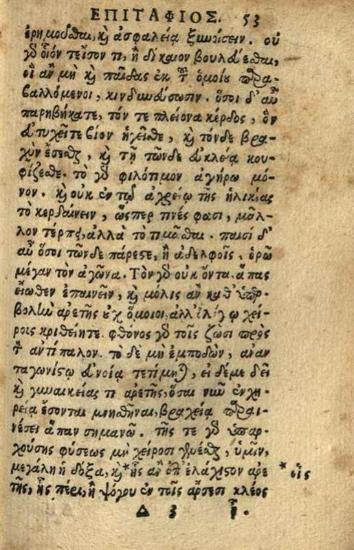 ΕΠΙΤΑΦΙΟΣ. 53
ἐρημοῦσθαι, καὶ ἀσφαλείᾳ ξυνοίσειν. οὐ
γὰρ οἷόν τε ἴσον τι, ἢ δίκαιον βουλεύεσθαι,
οἳ ἂν μὴ καὶ παῖδας ἐκ τοῦ ὁμοίου παρα
βαλλόμενοι, κινδυνεύωσιν. ὅσοι δ' αὖ
παρηβήκατε, τόν τε πλείονα κέρδος, ὃν
εὐτυχεῖτε βίον ἡγεῖσθε, καὶ τόνδε βρα
χὺν ἔσεσθαι, καὶ τῇ τῶνδε εὐκλείᾳ κου
φίζεσθε. τὸ γὰρ φιλότιμον ἀγήρω μό
νον. καὶ οὐκ ἐν τῷ ἀχρείῳ τῆς ἡλικίας
τὸ κερδαίνειν, ὥσπερ τινές φασι, μᾶλ
λον τέρπει, ἀλλὰ τὸ τιμᾶσθαι. παισὶ δ'
αὖ ὅσοι τῶνδε πάρεστε, ἢ ἀδελφοῖς, ὁρῶ
μέγαν τὸν ἀγῶνα. Τὸν γὰρ οὐκ ὄντα ἅπας
εἴωθεν ἐπαινεῖν, καὶ μόλις ἂν καθ' ὑπερ
βολὴν ἀρετῆς οὐχ ὅμοιοι, ἀλλ' ὀλίγῳ χεί
ροις κριθείητε. φθόνος γὰρ τοῖς ζῶσι πρὸς
τὸν ἀντίπαλον. τὸ δὲ μὴ ἐμποδών, ἀναν
ταγωνίστῳ εὐνοίᾳ τετίμηται, εἰ δέ με δεῖ
καὶ γυναικείας τι ἀρετῆς, ὅσαι νῦν ἐν χη
ρείᾳ ἔσονται μνησθῆναι, βραχείᾳ παραι
νέσει ἅπαν σημανῶ. τῆς τε γὰρ ὑπαρ
χούσης φύσεως μὴ χείροσι γενέσθαι, ὑμῖν,
μεγάλη ἡ δόξα, καὶ * ἧς ἂν ἐπ' ἐλάχιστον ἀρε *εἰς
τῆς, ἧς περι, ἢ ψόγου ἐν τοῖς ἄρσεσι κλέος
Δ 3 ᾖ.